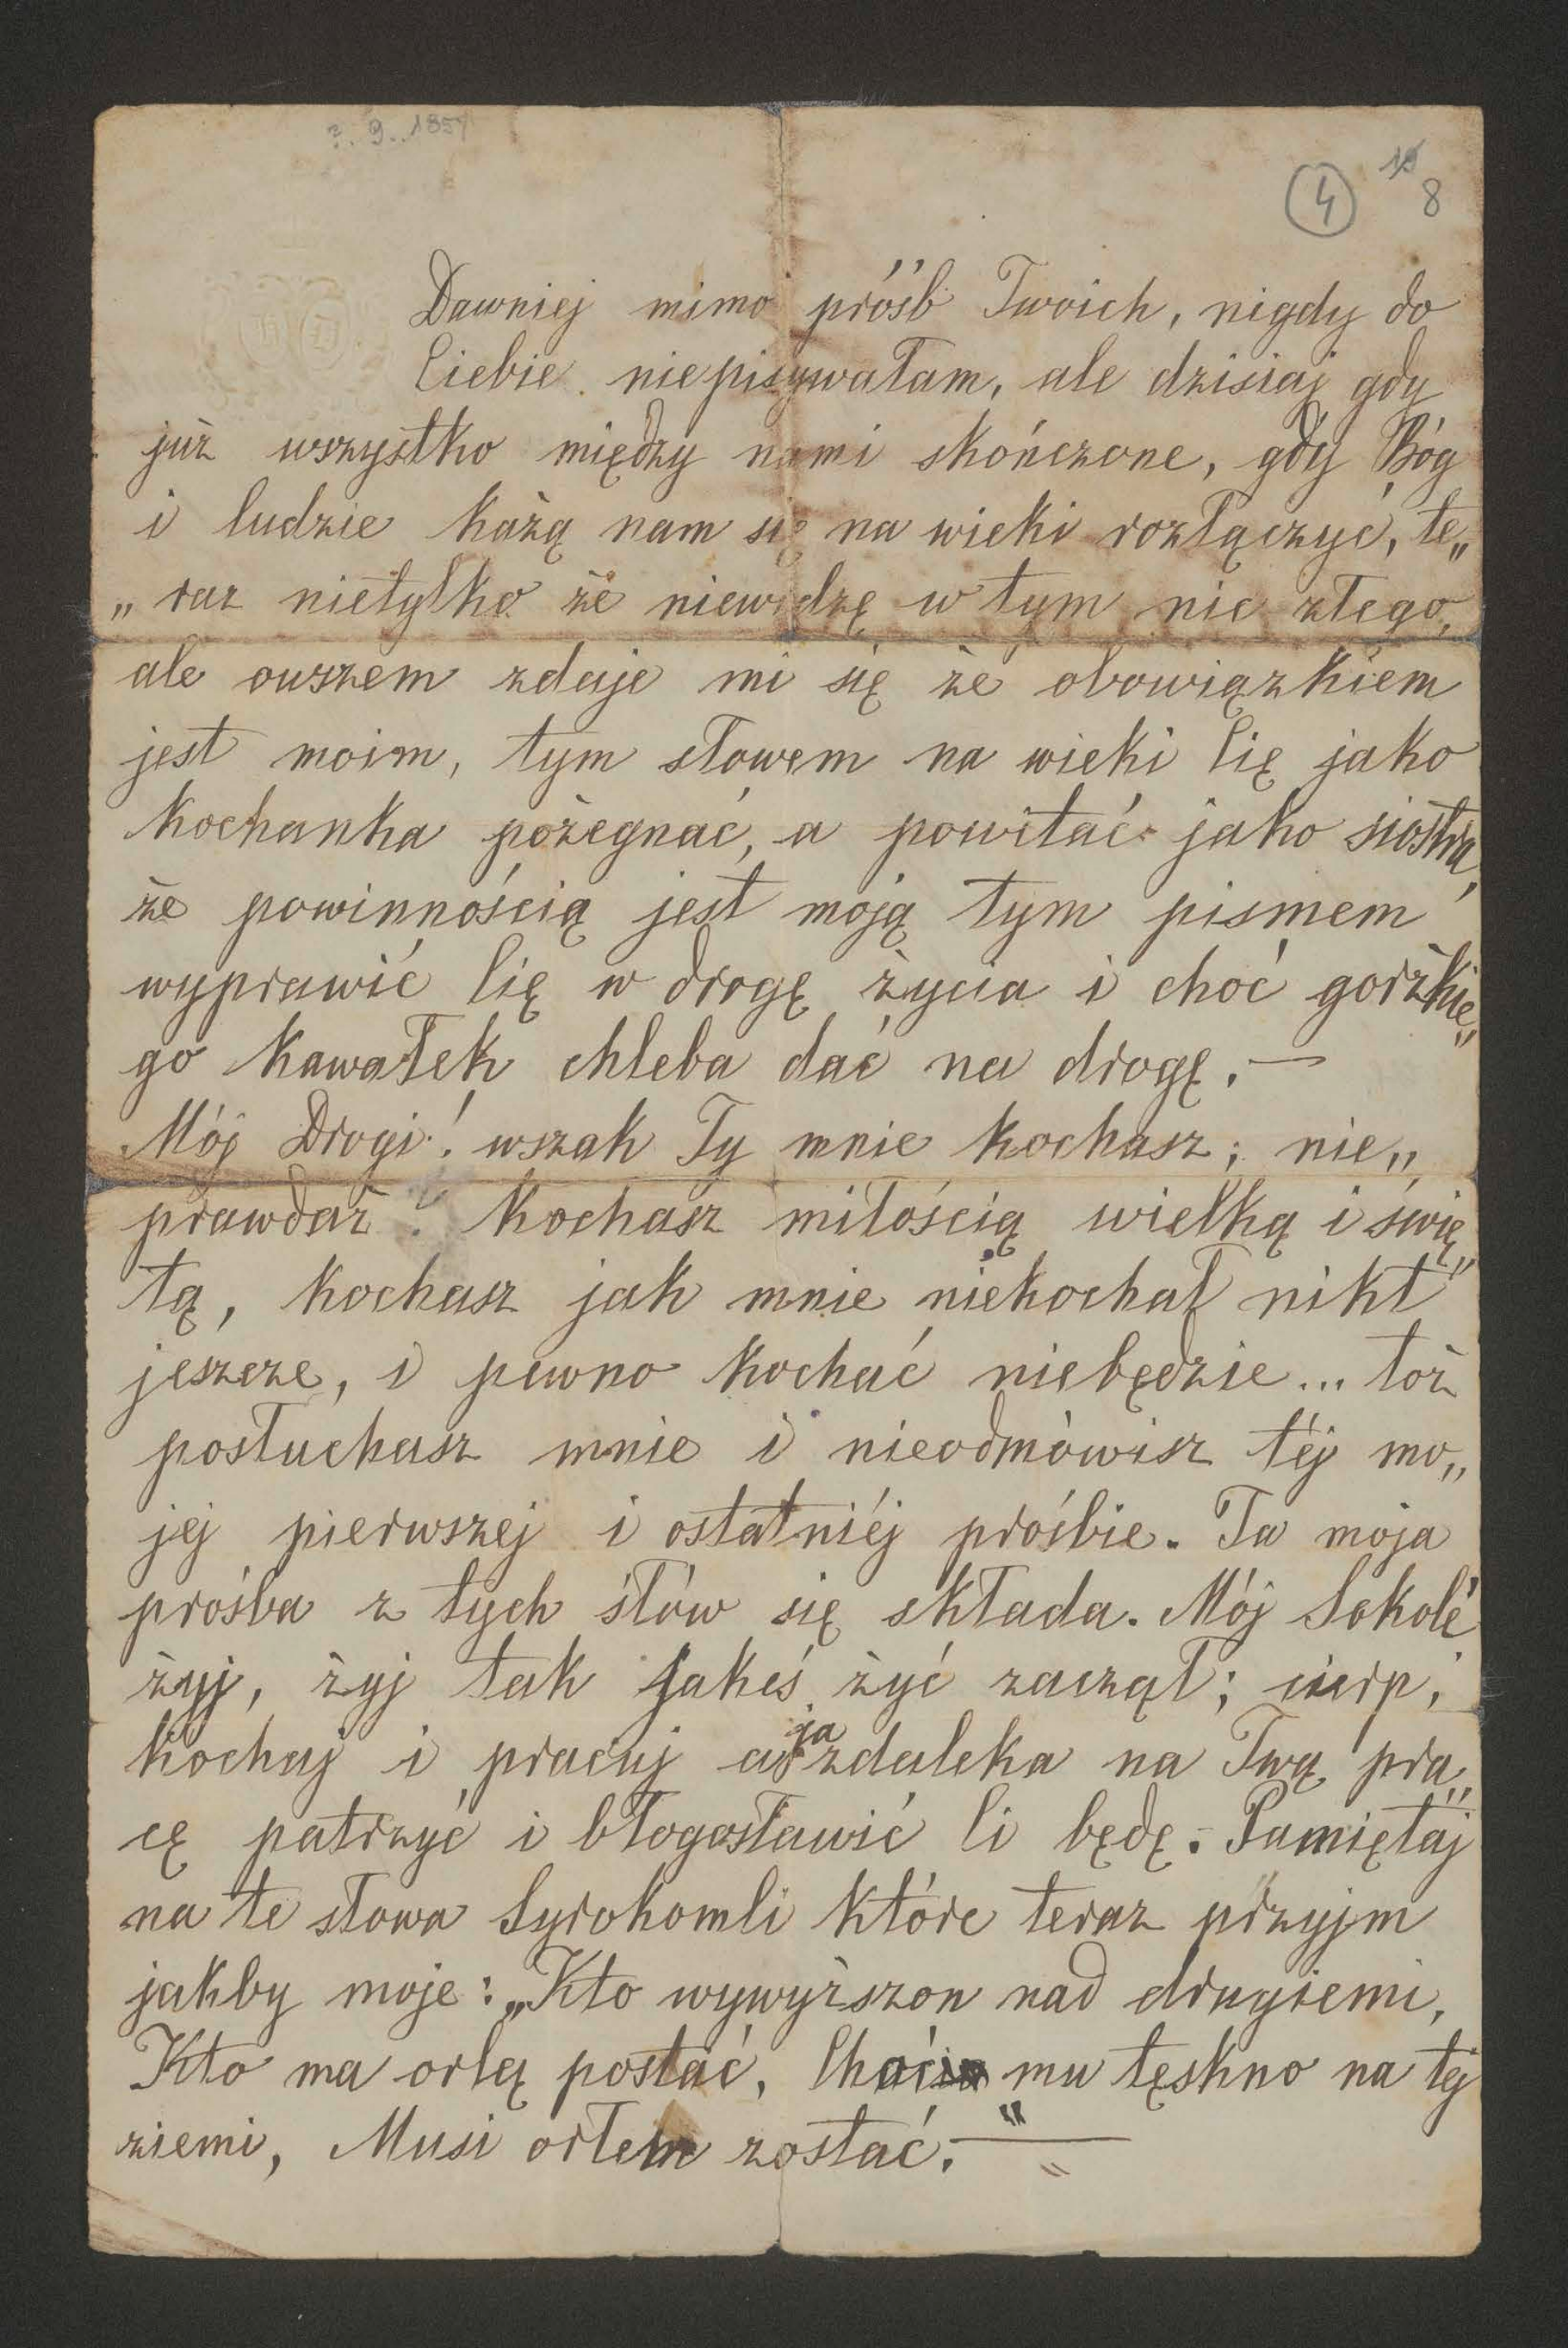 ?. 9.. 1857
4
8
Dawniej mimo próśb Twoich, nigdy do
Ciebie niepisywałam, ale dzisiaj gdy
już wszystko między nami skończone, gdy Bóg
i ludzie każą nam się na wieki rozłączyć, te„
„raz nietylko że niewidzę w tym nic złego,
ale owszem zdaje mi się że obowiązkiem
jest moim, tym słowem na wieki Cię jako
kochanka pożegnać, a powitać jako siostra,
że powinnością jest moją tym pismem
wyprawić Cię w drogę życia i choć gorżkie„
go kawałek chleba dać na drogę. —
Mój Drogi! wszak Ty mnie kochasz; nie„
prawdaż? kochasz miłością wielką i świę„
tą, kochasz jak mnie niekochał nikt
jeszcze, i pewno kochać niebędzie... toż
posłuchasz mnie i nieodmówisz téj mo„
jej pierwszej i ostatniéj prośbie. Ta moja
prośba z tych słów się składa. Mój Sokole
żyj, żyj tak jakeś żyć zaczął; cierp,
kochaj i pracuj a ja zdaleka na Twą pra„
cę patrzyć i błogosławić Ci będę. Pamiętaj
na te słowa Syrokomli które teraz przyjm
jakby moje: „Kto wywyższon nad drugiemi,
Kto ma orlą postać, Choć mu tęskno na tej
ziemi, Musi orłem zostać." —